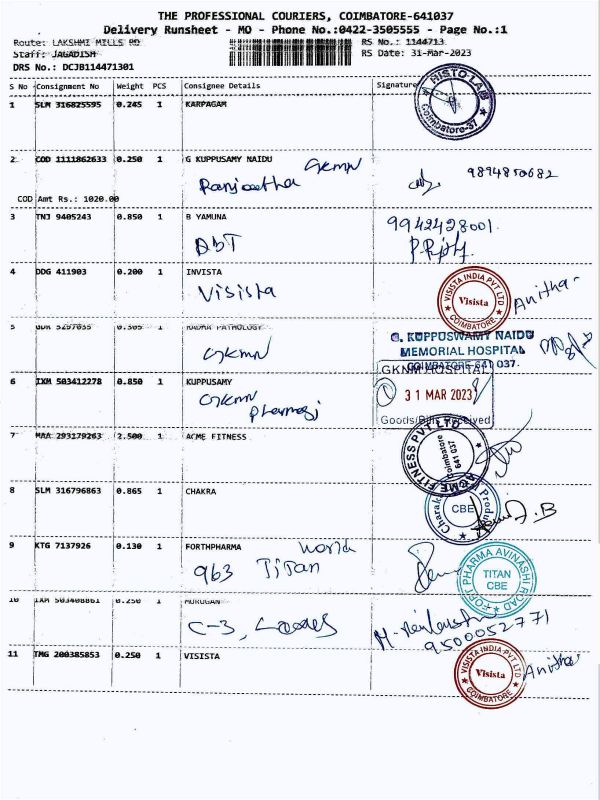 THE PROFESSIONAL COURIERS, COIMBATORE-641037
Delivery Runsheet - MO - Phone No.:0422-3505555 - Page No.:1
Route: LAKSHMI MILLS RD RS No.: 1144713
Staff: JAGADISH RS Date: 31-Mar-2023
DRS No.: DCJB114471301
S No Consignment No Weight PCS Consignee Details Signature
1 SLM 316825595 0.245 1 KARPAGAM
HISTO LAB
Coimbatore-37
2 COD 1111862633 0.250 1 G KUPPUSAMY NAIDU GKMN
Ranjeetha 9894850682
COD Amt Rs.: 1020.00
3 TNJ 9405243 0.850 1 B YAMUNA 9942428001.
DbT
4 DDG 411903 0.200 1 INVISTA
Visista
VISISTA INDIA PVT LTD
Visista
COIMBATORE
Anitha
5 0.305 1 KADAR PATHOLOGY
GKMN
G. KUPPUSWAMY NAIDU
MEMORIAL HOSPITAL
COIMBATORE-641 037.
6 IXM 503412278 0.850 1 KUPPUSAMY
GKMN
Pharmacy
GKNM HOSPITAL
31 MAR 2023
Goods/Bills Received
7 MAA 293179263 2.500 1 ACME FITNESS
ACME FITNESS PVT LTD
Coimbatore
641 037
8 SLM 316796863 0.865 1 CHAKRA
Charak
Produ
CBE
9 KTG 7137926 0.130 1 FORTHPHARMA World
963 TiTan
FORT PHARMA AVINASHI ROAD
TITAN
CBE
10 IXM 503408861 0.250 1 MURUGAN
C-3,
9500052771
11 TMG 200385853 0.250 1 VISISTA
VISISTA INDIA PVT LTD
Visista
COIMBATORE
Anitha